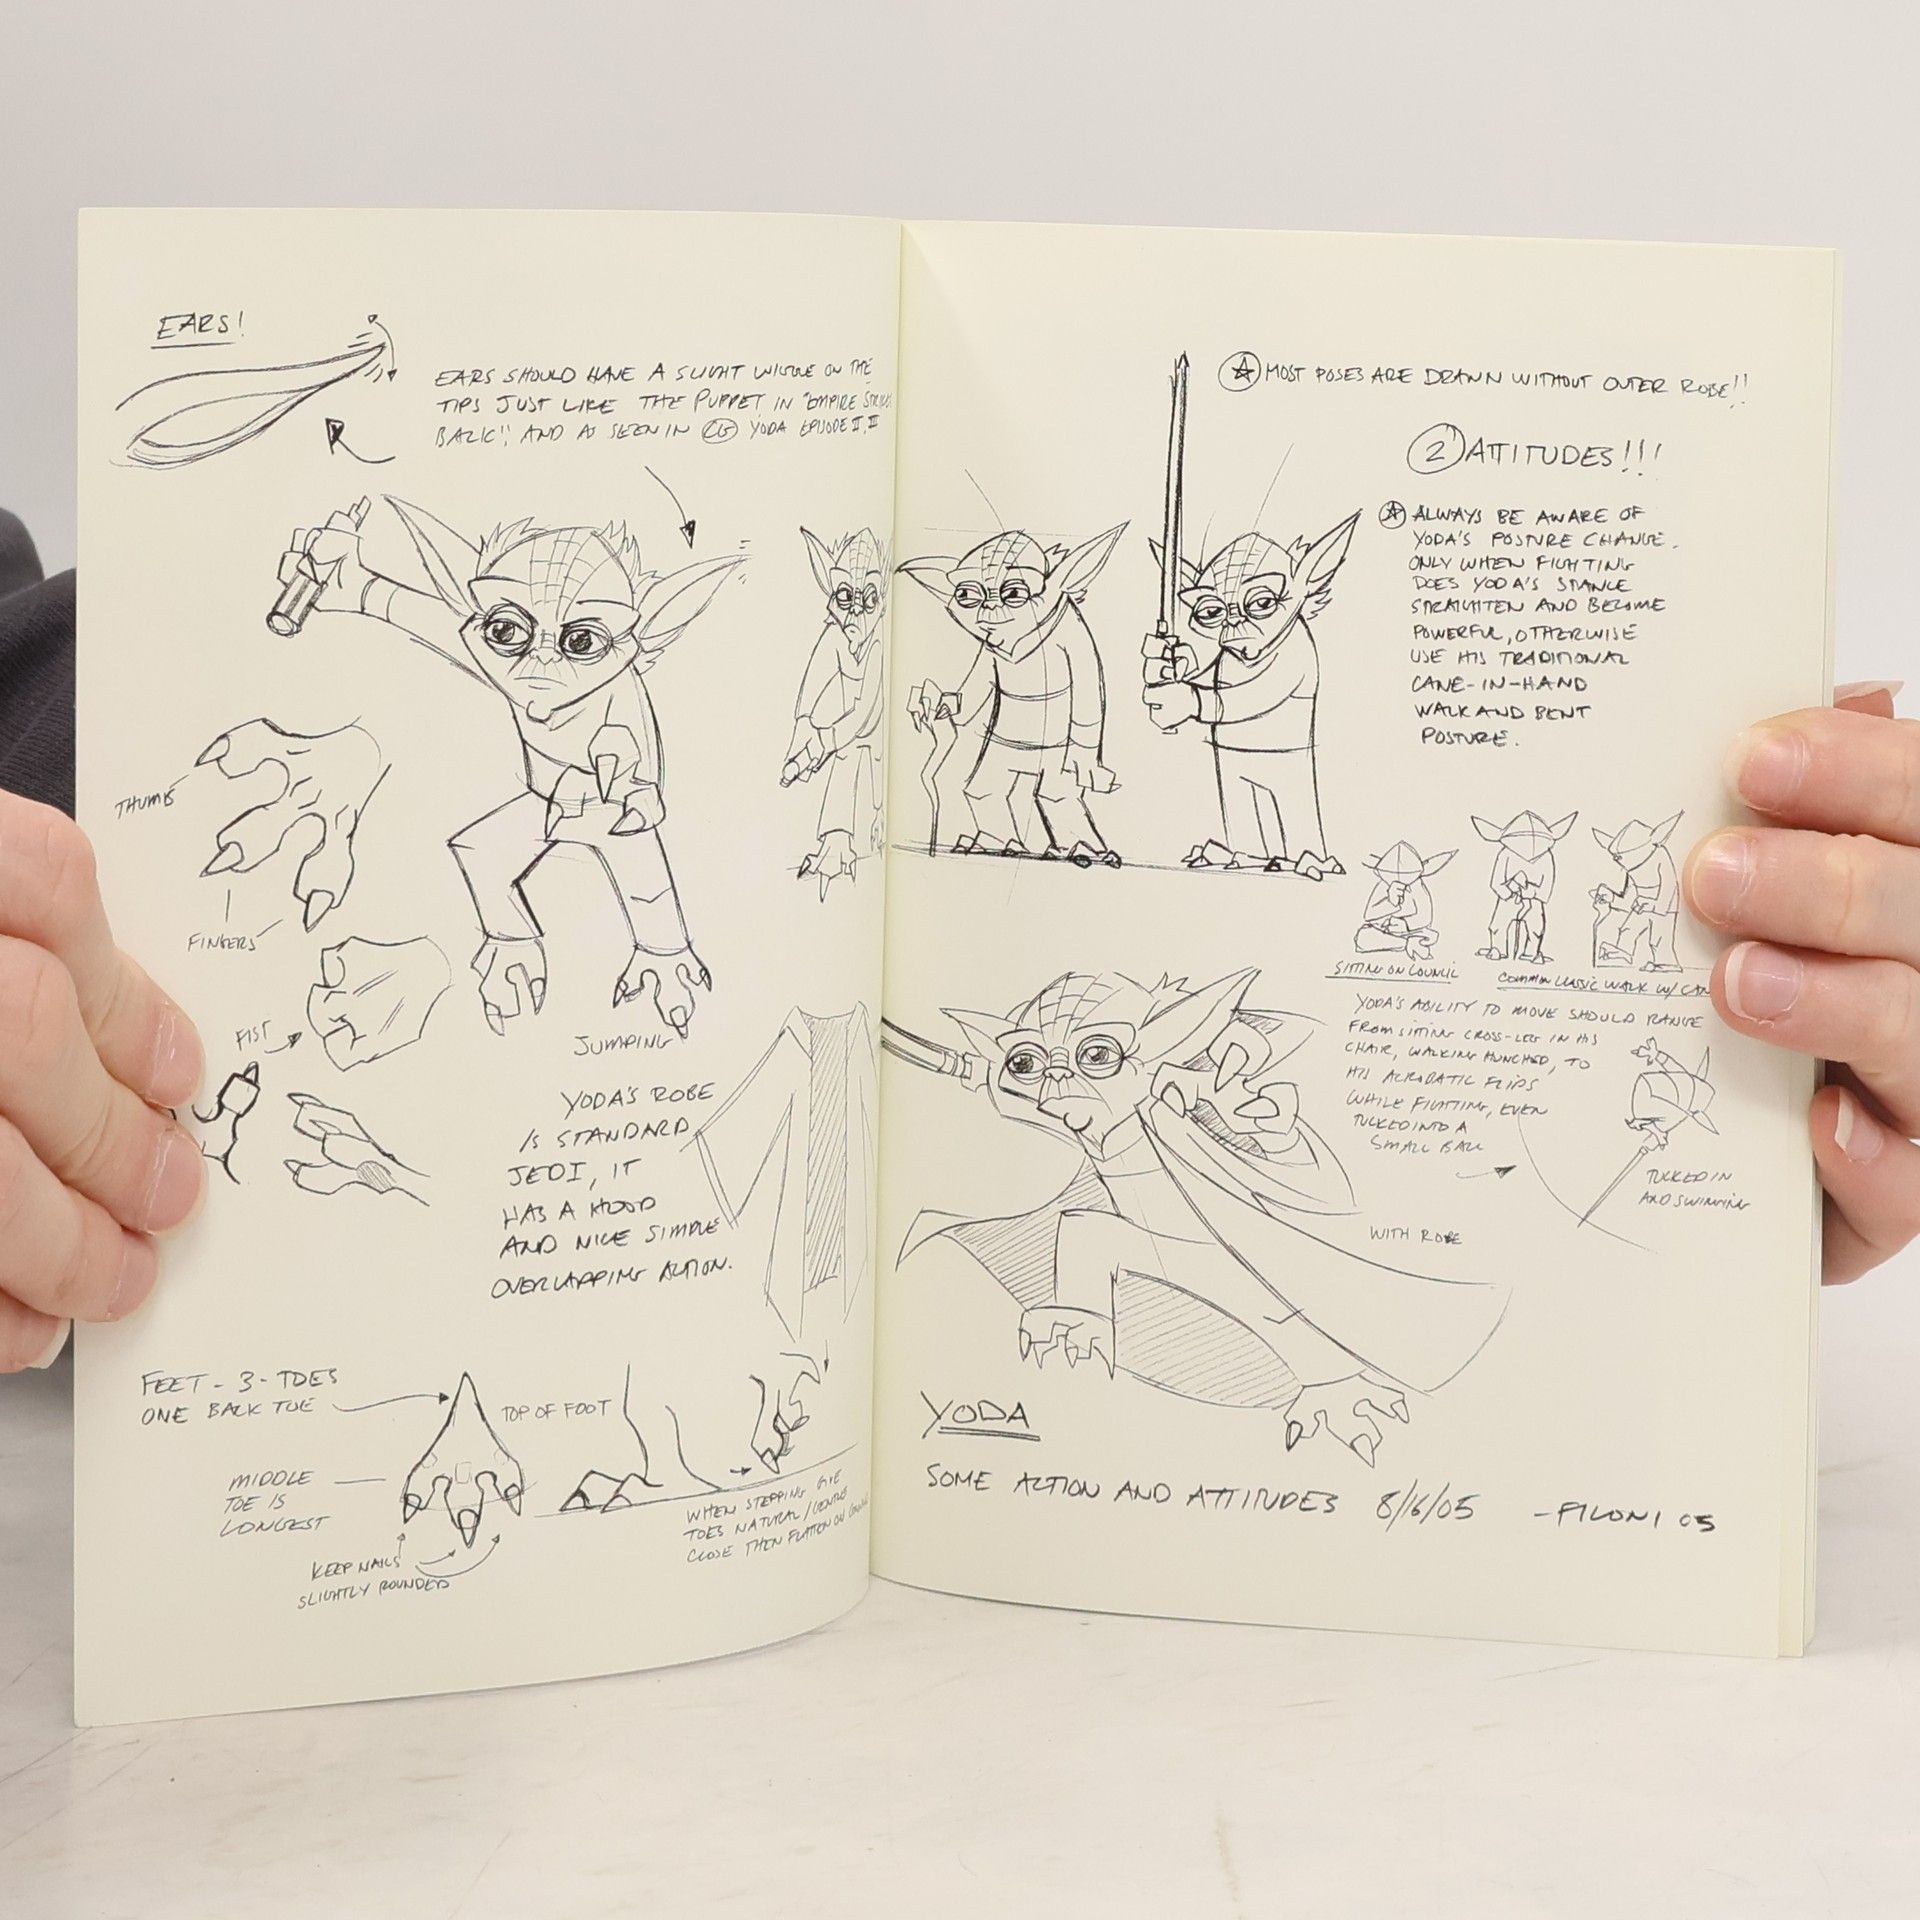 EARS!
EARS SHOULD HAVE A SLIGHT WIGGLE ON THE
TIPS JUST LIKE THE PUPPET IN "EMPIRE STRIKES
BACK", AND AS SEEN IN CG YODA EPISODE II,
THUMB
FINGERS
FIST
JUMPING
YODA'S ROBE
IS STANDARD
JEDI, IT
HAS A HOOD
AND NICE SIMPLE
OVERLAPPING ACTION.
FEET - 3 - TOES
ONE BACK TOE
TOP OF FOOT
MIDDLE
TOE IS
LONGEST
KEEP NAILS
SLIGHTLY ROUNDED
WHEN STEPPING GIVE
TOES NATURAL/GENTLE
CLOSE THEN FLATTEN ON
MOST POSES ARE DRAWN WITHOUT OUTER ROBE!!
2 ATTITUDES!!!
ALWAYS BE AWARE OF
YODA'S POSTURE CHANGE.
ONLY WHEN FIGHTING
DOES YODA'S STANCE
STRAIGHTEN AND BECOME
POWERFUL, OTHERWISE
USE HIS TRADITIONAL
CANE-IN-HAND
WALK AND BENT
POSTURE.
SITTING ON COUNCIL
COMMON CLASSIC WALK W/ CAN
YODA'S ABILITY TO MOVE SHOULD RANGE
FROM SITTING CROSS-LEG IN HIS
CHAIR, WALKING HUNCHED, TO
HIS ACROBATIC FLIPS
WHILE FIGHTING, EVEN
TUCKED INTO A
SMALL BALL
TUCKED IN
AND SWINGING
WITH ROBE
YODA
SOME ACTION AND ATTITUDES 8/16/05 -FILONI 05